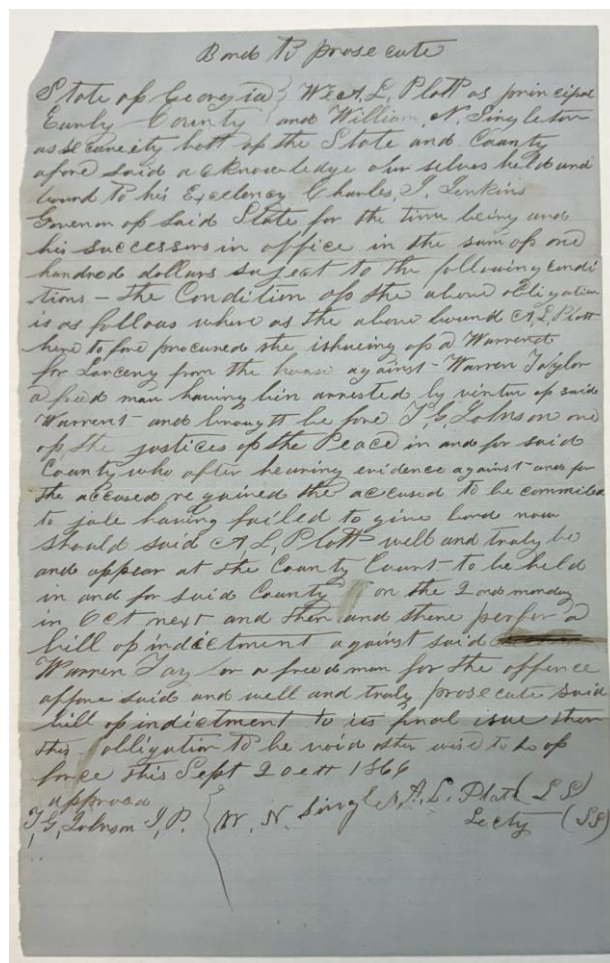 Bond to prosecute
State of Georgia } We A, L, Plott as principal
Early County } and William, N, Singleton
as security both of the State and County
afore said acknowledge our selves held and
bound to his Exclency Charles, J, Jenkins
Govenor of said State for the time being and
his successors in office in the sum of one
hundred dollars suject to the following condi
tions - the Condition of the above obligation
is as follows where as the above bound A, L, Plott
here to fore procured the ishueing of a Warrend
for Larceny from the house against Warren Taylor
a freed man having bin arrested by virtue of said
Warrent and brought be fore T, G, Johnson one
of the justices of the Peace in and for said
County who after hearing evidence against and for
the accused required the accused to be commited
to jale having failed to give bond now
should said A, L, Plott well and truly be
and appear at the County Court to be held
in and for said County on the 2ond monday
in Oct next and then and there perfer a
bill of indictment against said
Warren Taylor a freed man for the offence
affore said and well and truly prosecute said
bill of indictment to its final isue then
this obligation to be void other wise to be of
force this Sept 20ett 1866
approved
T, G, Johnson J, P. { W. N. Singleton, A. L. Plott (LS)
Scty (SS)